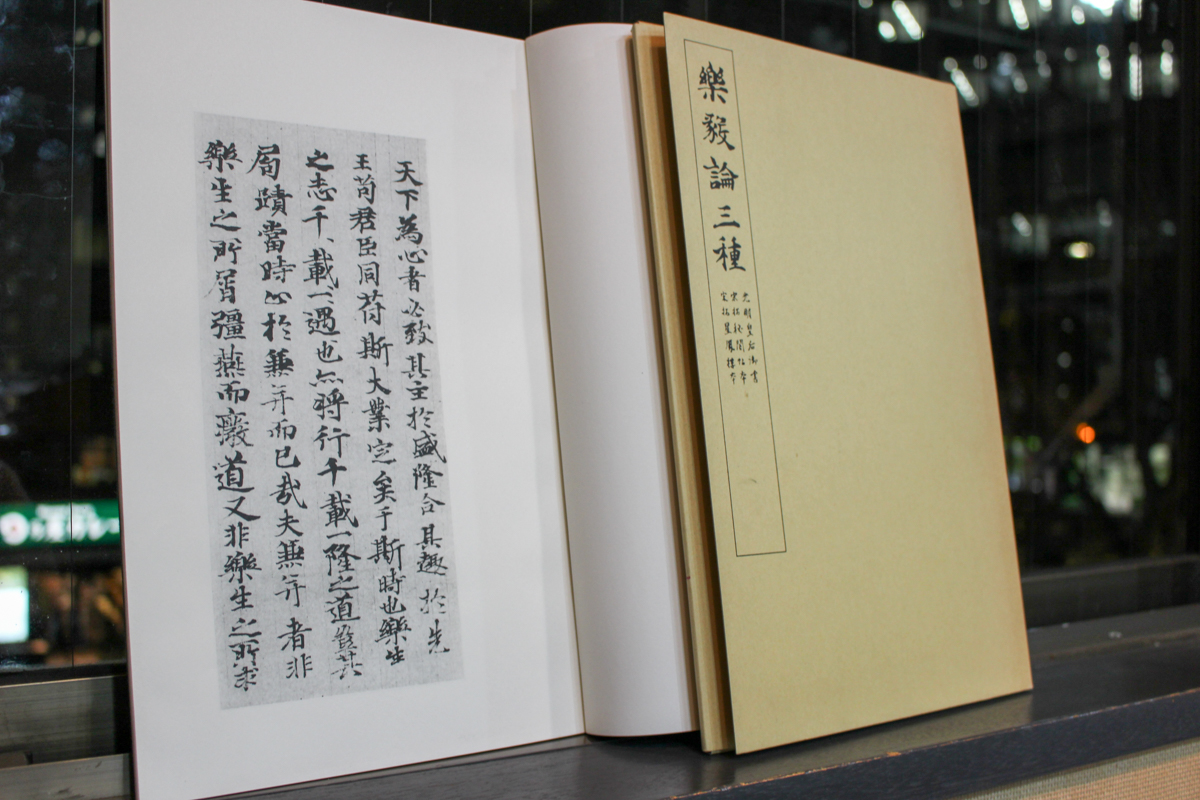 樂毅論三種
光明皇后御書
宋拓秘閣帖本
宋拓星鳳樓本
天下為心者必致其主於盛隆合其趣於先
王苟君臣同苻斯大業定矣于斯時也樂生
之志千載一遇也亦將行千載一隆之道豈其
局蹟當時止於兼并而已哉夫兼并者非
樂生之所屑彊燕而廢道又非樂生之所求